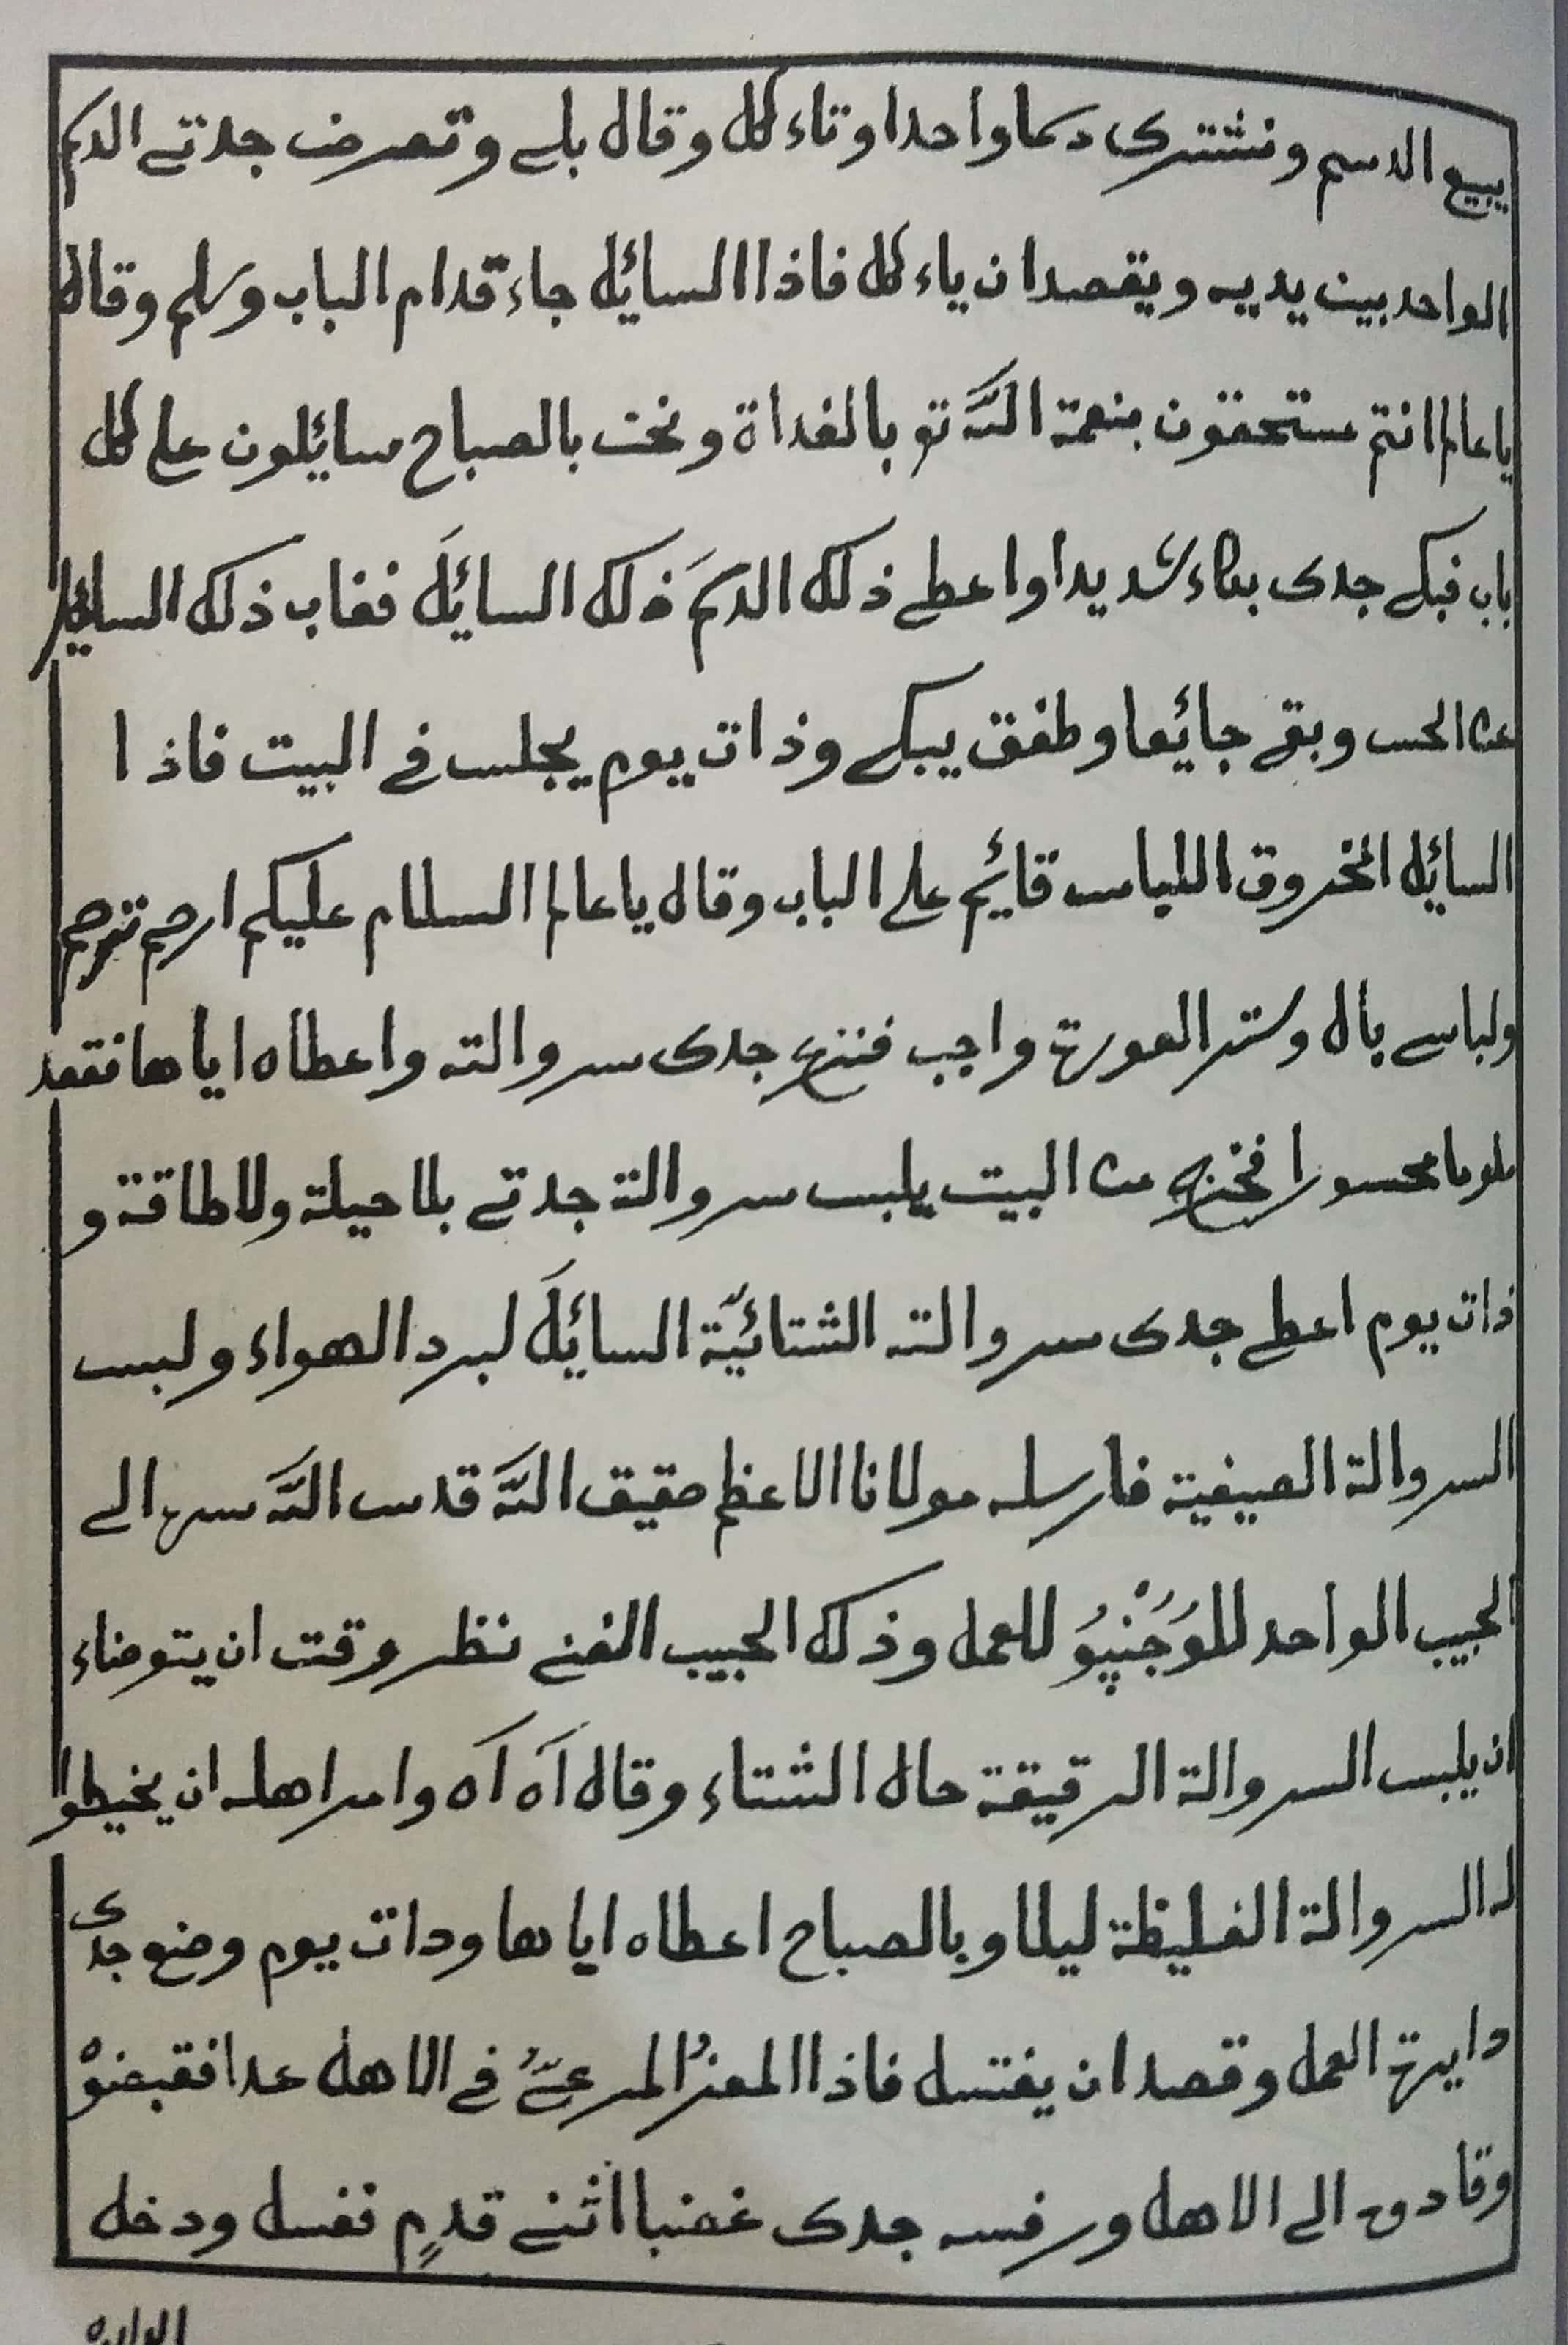 يبيع الدسم ونشترى دسما واحدا وتاءكل وقال بلے وتعرض جدتے الدسم
الواحد بين يديه ويقصد ان ياءكل فاذا السائل جاء قدام الباب وسلم وقال
يا عالم انتم مستحقون بنعمة اللّٰه تو بالغداة ونحن بالصباح سائلون علے كل
باب فبكے جدى بكاء شديدا واعطے ذلك الدسمَ ذلك السائلَ فغاب ذلك السائل
عن الحس وبقے جائعا وطفق يبكے وذات يوم يجلس فے البيت فاذا
السائل المخروق اللباس قائم علے الباب وقال يا عالم السلام عليكم ارحم ترحم
ولباسے بال وستر العورة واجب فنزع جدى سروالته واعطاه اياها فقعد
ملوما محسورا فخرج من البيت يلبس سروالة جدتے بلا حيلة ولا طاقة و
ذات يوم اعطے جدى سروالته الشتائيّة السائلَ لبرد الهواء ولبس
السروالة الصيفية فارسله مولانا الاعظم حقيق اللّٰه قدس اللّٰه سره الے
الحبيب الواحد للوَجَنْپوُ للعمل وذلك الحبيب الغنے نظر وقت ان يتوضاء
ان يلبس السروالة الرقيقة حال الشتاء وقال اَه اَه وامر اهله ان يخيطوا
له السروالة الغليظة ليلا وبالصباح اعطاه اياها وذات يوم وضع جدى
دايرة العمل وقصد ان يغتسل فاذا المعزُ المرعےُّ فے الاهل عدا فقبضوْ
وقادوه الے الاهل ورفسه جدى غضبا اثنے قدمٍ فغسل ودخل